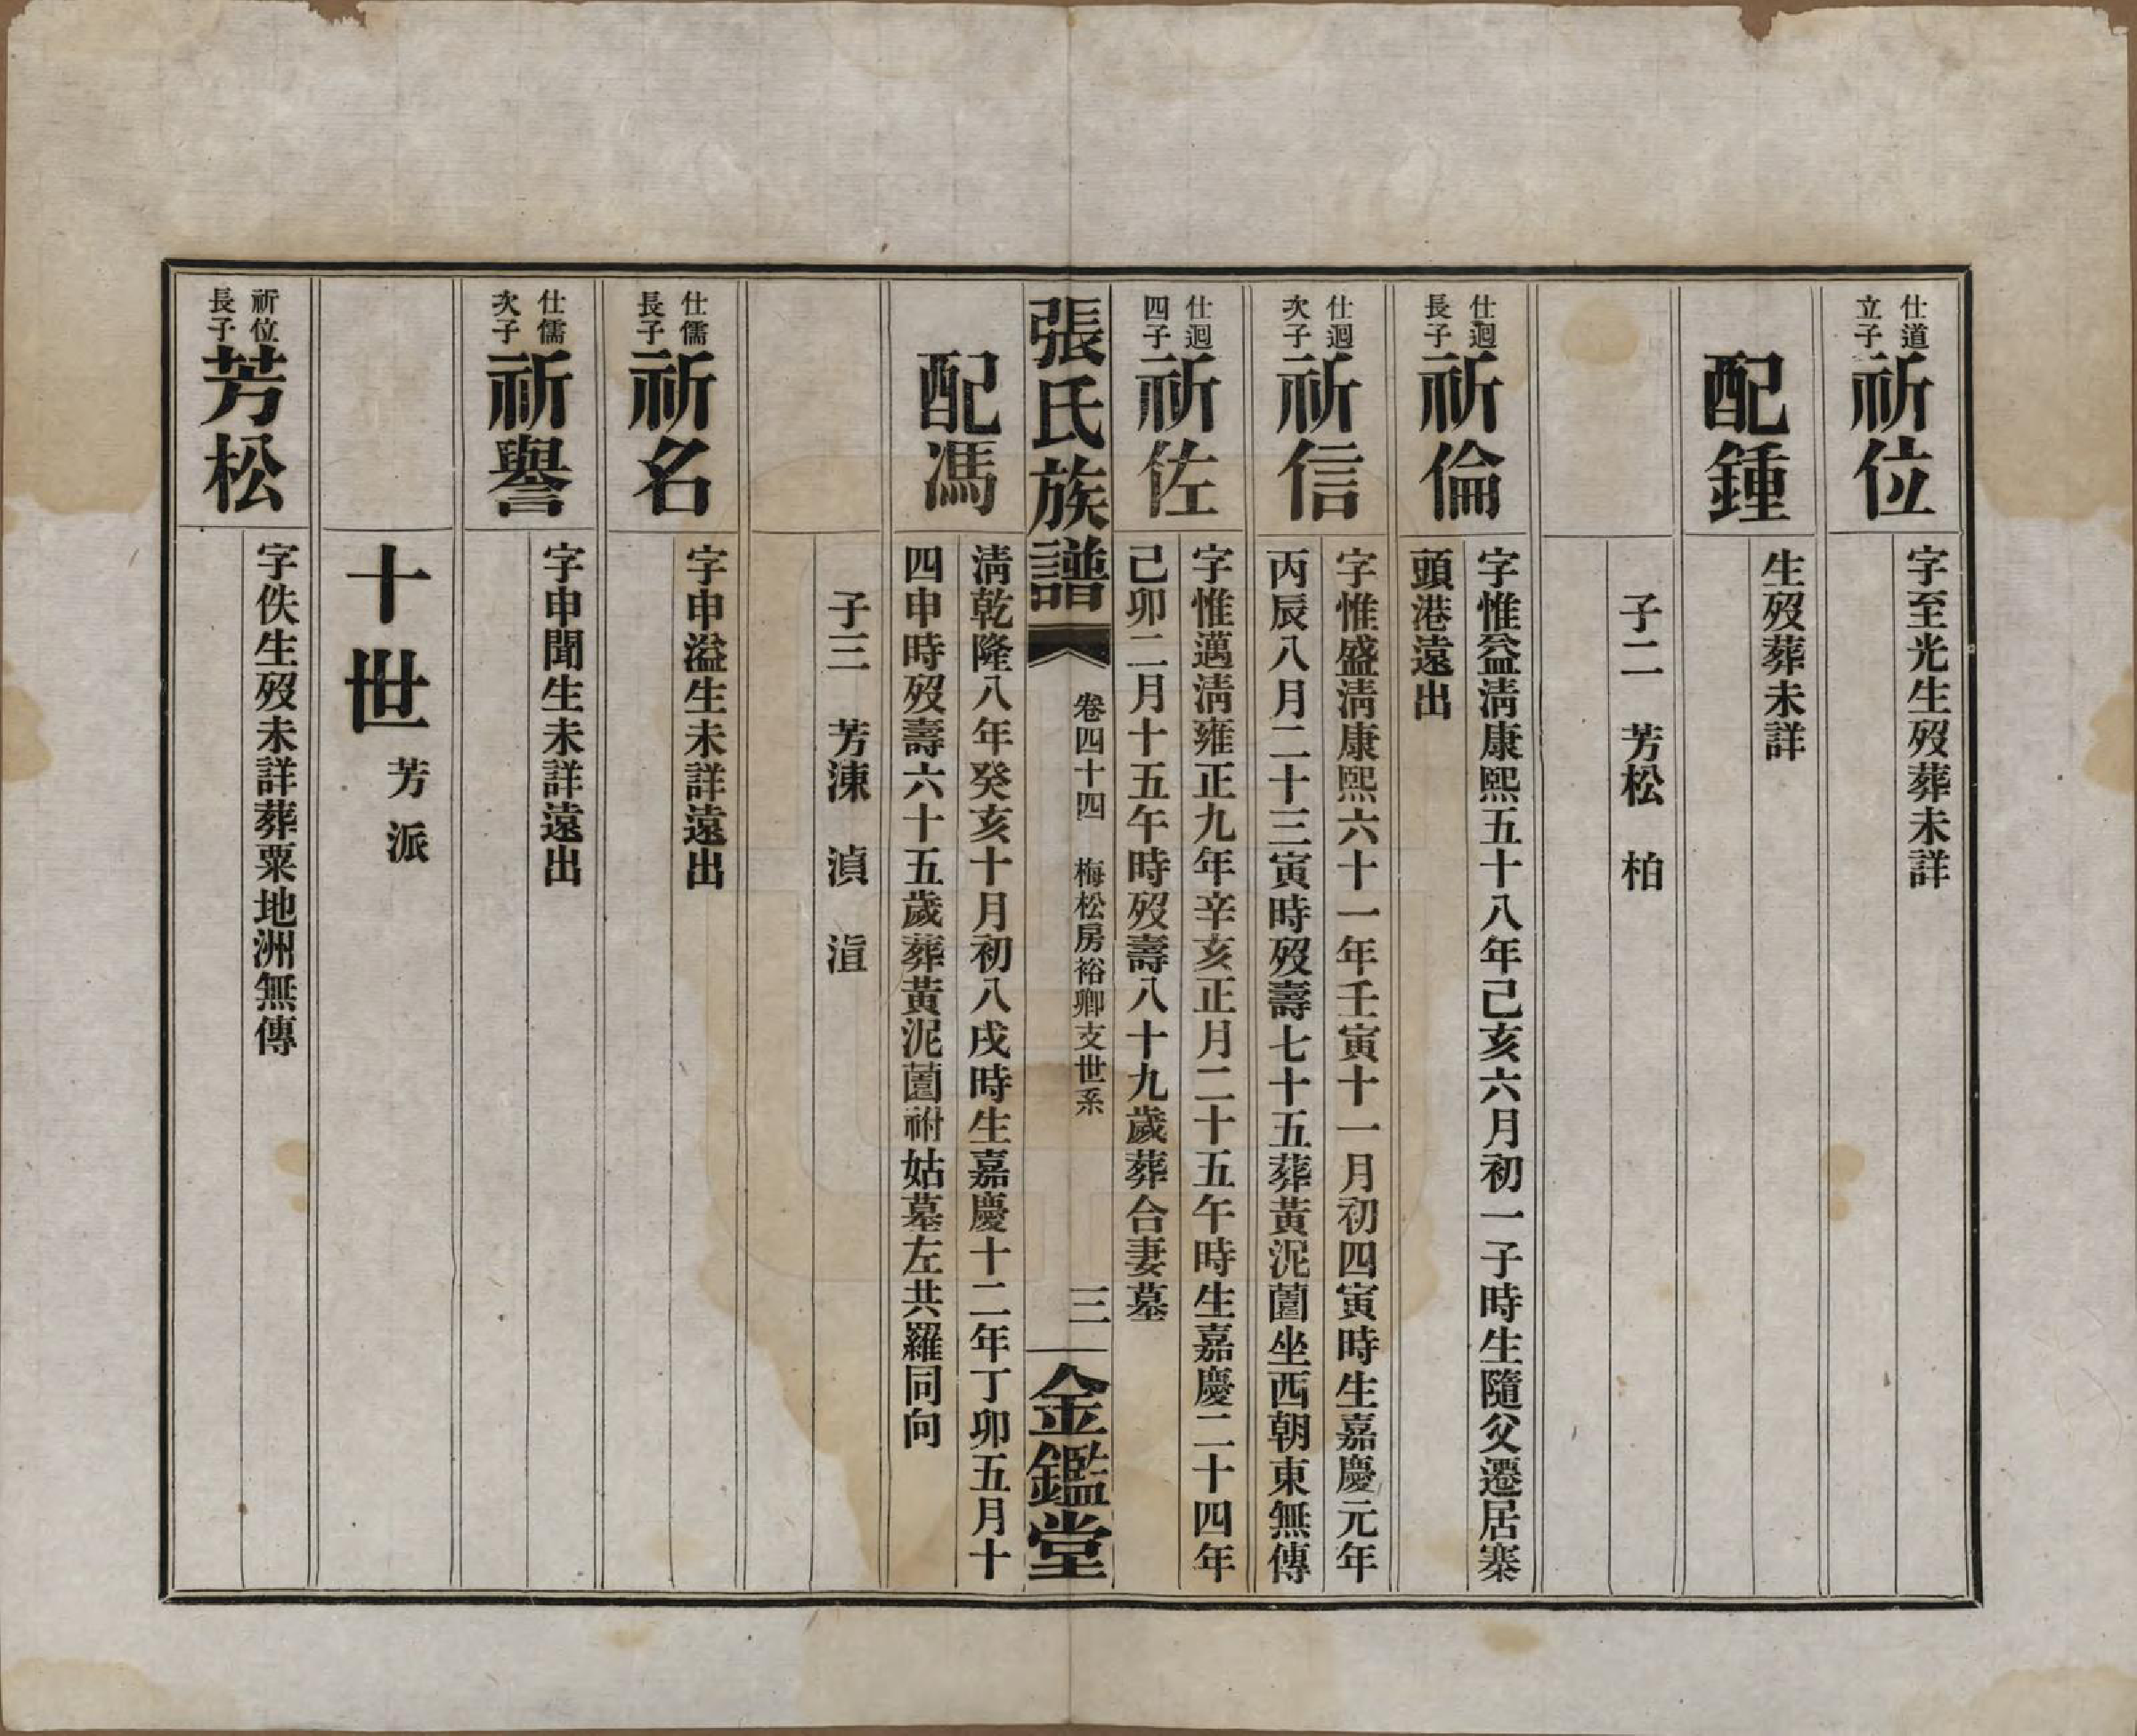 仕道
立子
祈位
字至光生歿葬未詳
配鍾
生歿葬未詳
子二　芳松　柏
仕迴
長子
祈倫
字惟益淸康熙五十八年己亥六月初一子時生隨父遷居寨
頭港遠出
仕迴
次子
祈信
字惟盛淸康熙六十一年壬寅十一月初四寅時生嘉慶元年
丙辰八月二十三寅時歿壽七十五葬黃泥薗坐西朝東無傳
仕迴
四子
祈佐
字惟邁淸雍正九年辛亥正月二十五午時生嘉慶二十四年
己卯二月十五午時歿壽八十九歲葬合妻墓
張氏族譜
卷四十四　梅松房裕卿支世系
三
金鑑堂
配馮
淸乾隆八年癸亥十月初八戌時生嘉慶十二年丁卯五月十
四申時歿壽六十五歲葬黃泥薗祔姑墓左共羅同向
子三　芳涷　滇　湒
仕儒
長子
祈名
字申溢生未詳遠出
仕儒
次子
祈譽
字申聞生未詳遠出
十世
芳派
祈位
長子
芳松
字佚生歿未詳葬粟地洲無傳